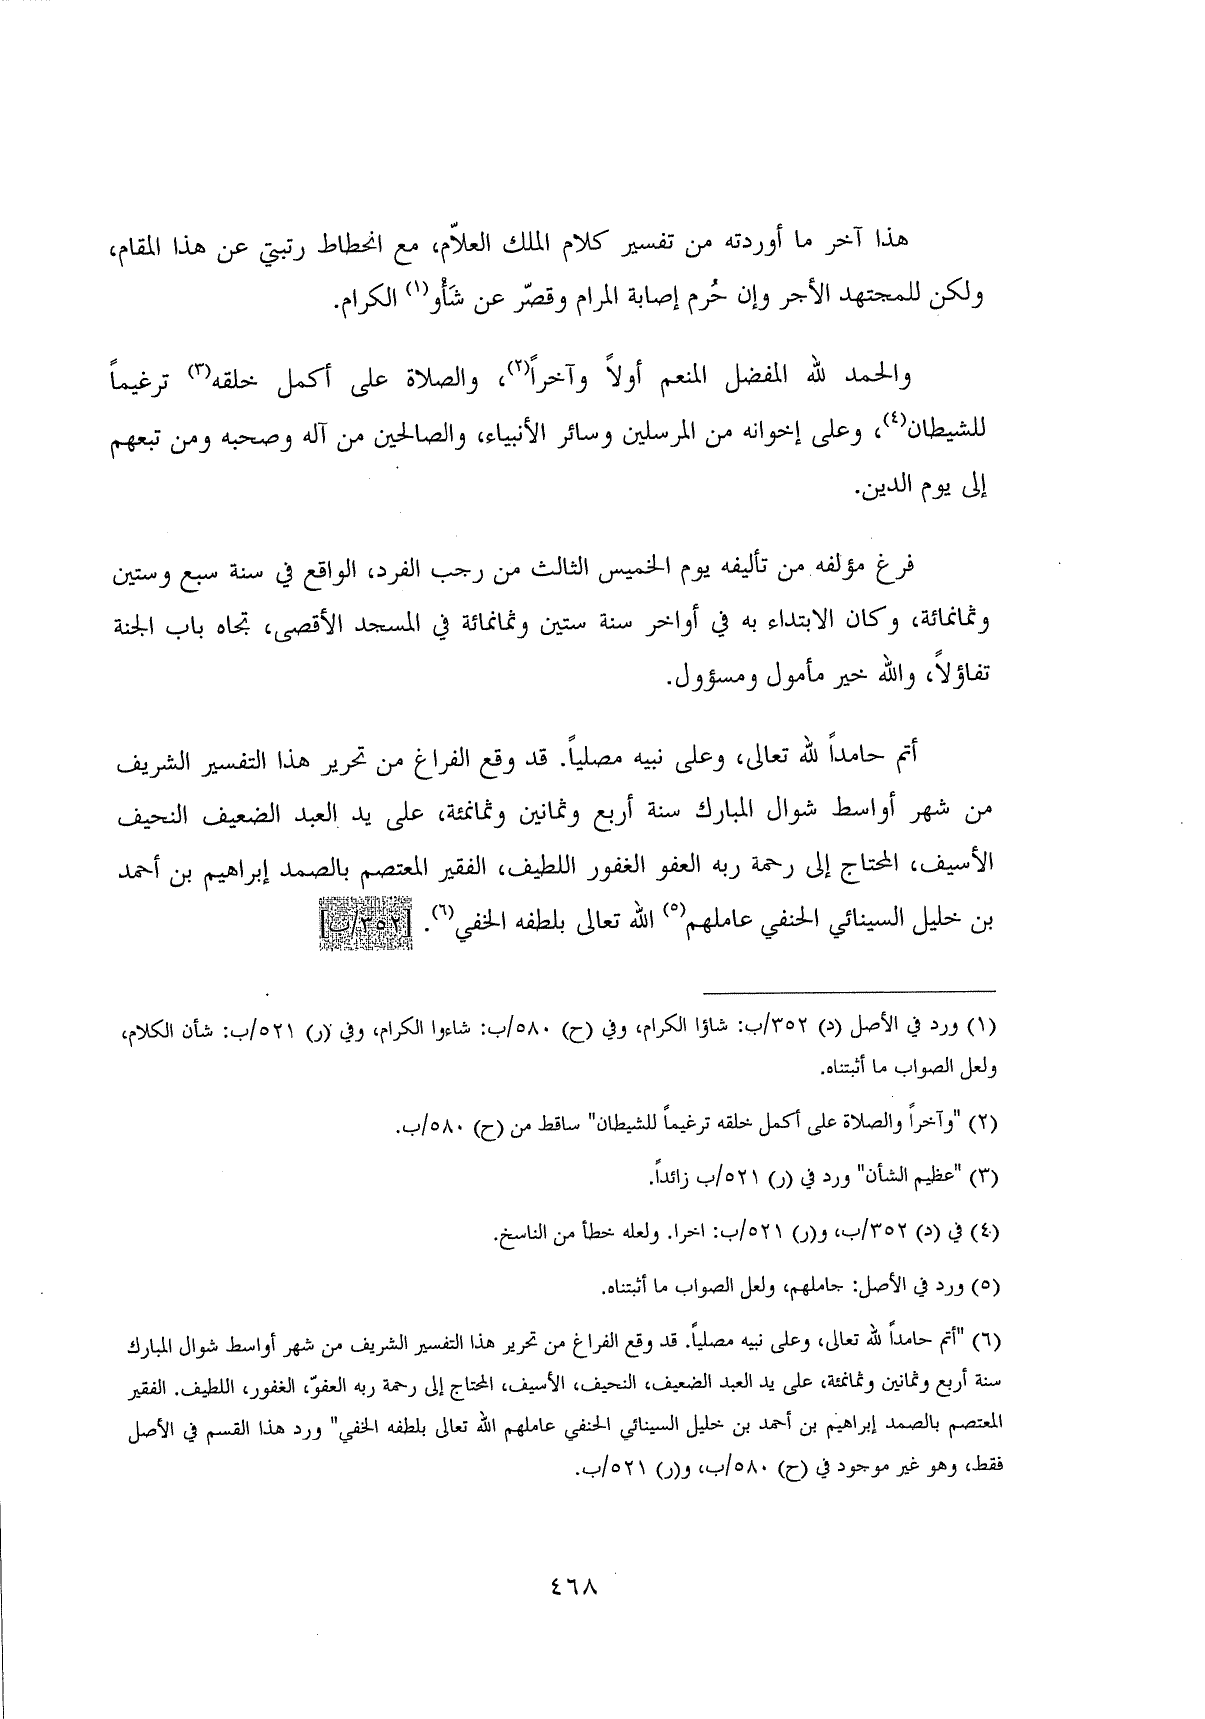 هذا آخر ما أوردته من تفسير كلام الملك العلاّم، مع انحطاط رتبتي عن هذا المقام،
ولكن للمجتهد الأجر وإن حُرم إصابة المرام وقصّر عن شَأْو(١) الكرام.
والحمد لله المفضل المنعم أولاً وآخراً(٢)، والصلاة على أكمل خلقه(٣) ترغيماً
للشيطان(٤)، وعلى إخوانه من المرسلين وسائر الأنبياء، والصالحين من آله وصحبه ومن تبعهم
إلى يوم الدين.
فرغ مؤلفه من تأليفه يوم الخميس الثالث من رجب الفرد، الواقع في سنة سبع وستين
وثمانمائة، وكان الابتداء به في أواخر سنة ستين وثمانمائة في المسجد الأقصى، تجاه باب الجنة
تفاؤلاً، والله خير مأمول ومسؤول.
أتم حامداً لله تعالى، وعلى نبيه مصلياً. قد وقع الفراغ من تحرير هذا التفسير الشريف
من شهر أواسط شوال المبارك سنة أربع وثمانين وثمانمئة، على يد العبد الضعيف النحيف
الأسيف، المحتاج إلى رحمة ربه العفو الغفور اللطيف، الفقير المعتصم بالصمد إبراهيم بن أحمد
بن خليل السينائي الحنفي عاملهم(٥) الله تعالى بلطفه الخفي(٦). [٣٥٢/ب]
(١) ورد في الأصل (د) ٣٥٢/ب: شاؤا الكرام، وفي (ح) ٥٨٠/ب: شاءوا الكرام، وفي (ر) ٥٢١/ب: شأن الكلام،
ولعل الصواب ما أثبتناه.
(٢) "وآخراً والصلاة على أكمل خلقه ترغيماً للشيطان" ساقط من (ح) ٥٨٠/ب.
(٣) "عظيم الشأن" ورد في (ر) ٥٢١/ب زائداً.
(٤) في (د) ٣٥٢/ب، و(ر) ٥٢١/ب: اخرا. ولعله خطأ من الناسخ.
(٥) ورد في الأصل: جاملهم، ولعل الصواب ما أثبتناه.
(٦) "أتم حامداً لله تعالى، وعلى نبيه مصلياً. قد وقع الفراغ من تحرير هذا التفسير الشريف من شهر أواسط شوال المبارك
سنة أربع وثمانين وثمانمئة، على يد العبد الضعيف، النحيف، الأسيف، المحتاج إلى رحمة ربه العفوّ، الغفور، اللطيف. الفقير
المعتصم بالصمد إبراهيم بن أحمد بن خليل السينائي الحنفي عاملهم الله تعالى بلطفه الخفي" ورد هذا القسم في الأصل
فقط، وهو غير موجود في (ح) ٥٨٠/ب، و(ر) ٥٢١/ب.
٤٦٨